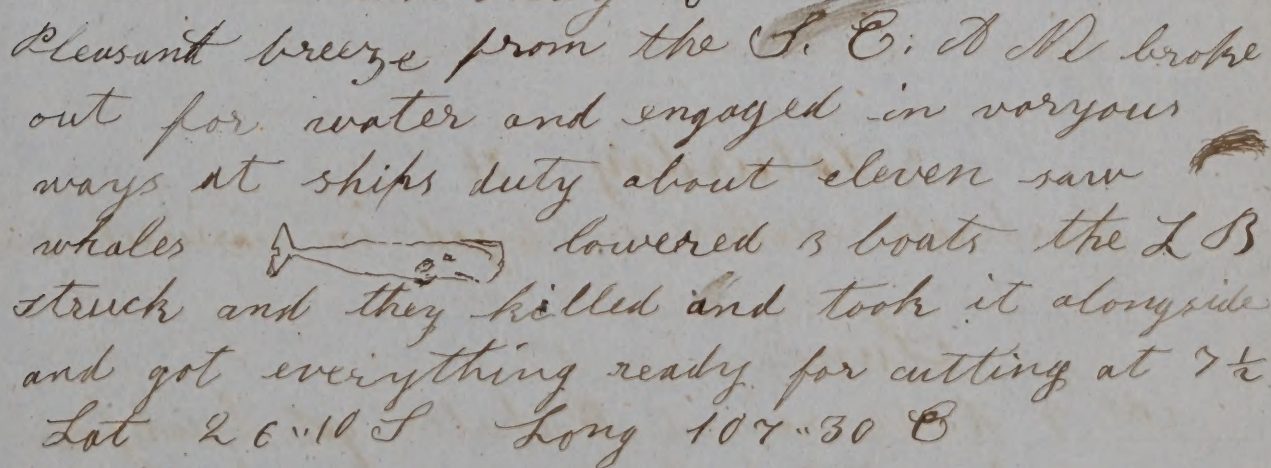 Pleasant breeze from the S. E: A M broke
out for water and engaged in varyous
ways at ships duty about eleven saw
whales lowered 3 boats the L B
struck and they killed and took it alongside
and got everything ready for cutting at 7 ½
Lat 26"10 S Long 107"30 E